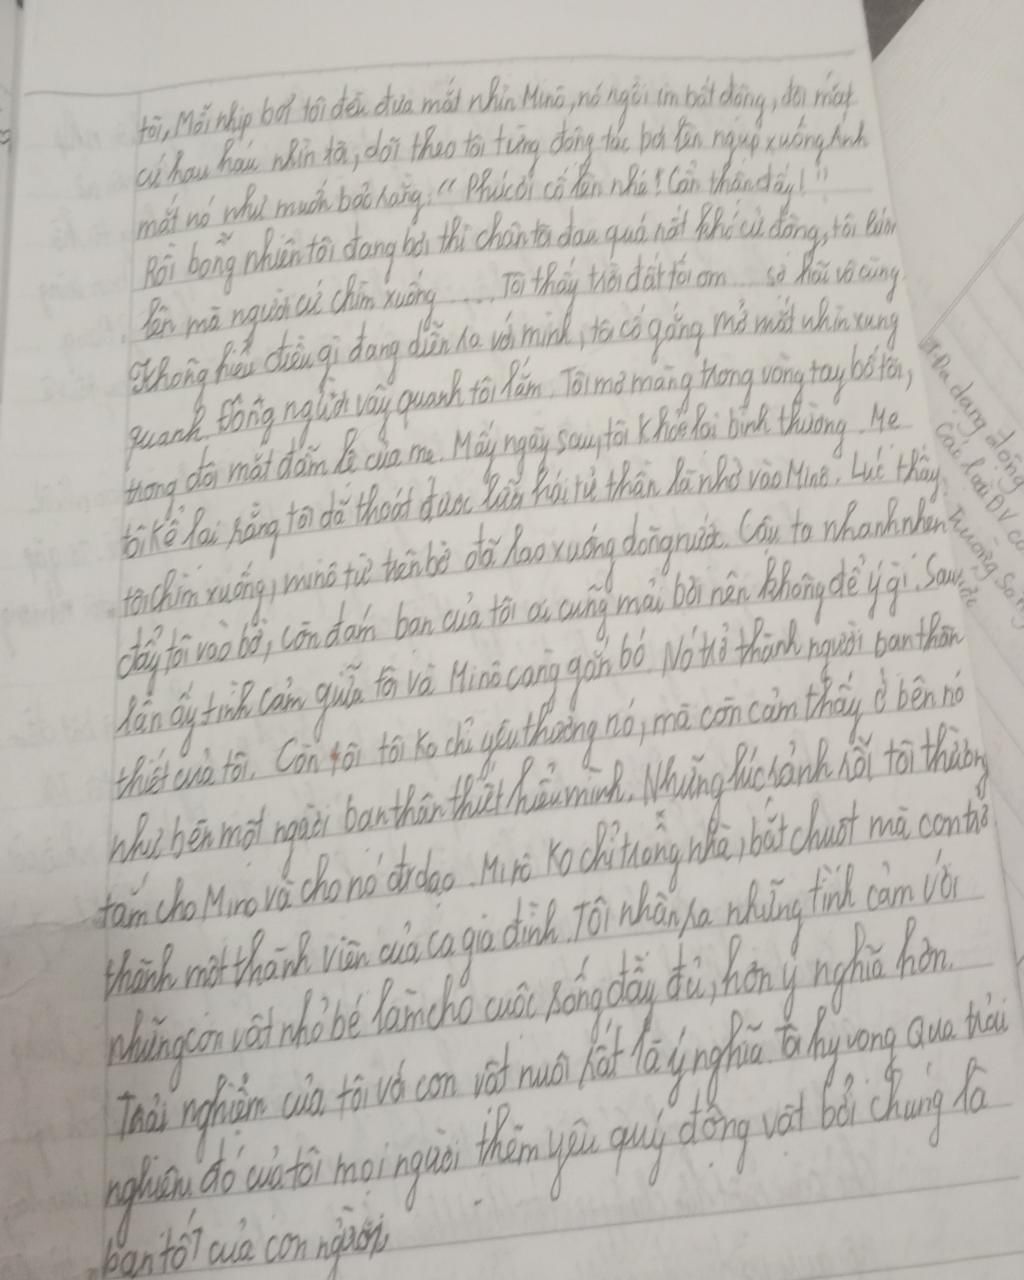 tôi, Mỗi nhịp bơi tôi đều đưa mắt nhìn Minô, nó ngồi im bất động, đôi mắt
cứ hau háu nhìn tôi, dõi theo tôi từng động tác bơi lên ngụp xuống Ánh
mắt nó như muốn bảo rằng: " Phúc ơi cố lên nhé! Cẩn thận đấy! "
Rồi bỗng nhiên tôi đang bơi thì chân tôi đau quá rất khó cử động, tôi
lên mà người cứ chìm xuống ..... Tôi thấy trời đất tối om ... sợ hãi vô cùng
Không hiểu điều gì đang diễn ra với mình, tôi cố gắng mở mắt nhìn xung
quanh. Đông người vây quanh tôi lắm. Tôi mơ màng trong vòng tay bố tôi,
trong đôi mắt đẫm lệ của mẹ. Mấy ngày sau, tôi khỏe lại bình thường. Mẹ
tôi kể lại rằng tôi đã thoát được lưỡi hái tử thần là nhờ vào Minô. Lúc thấy
tôi chìm xuống, minô từ trên bờ đã lao xuống dòng nước. Cậu ta nhanh nhẹn
đẩy tôi vào bờ, còn đám bạn của tôi ai cũng mải bơi nên không để ý gì. Sau
lần ấy tình cảm giữa tôi và Minô càng gắn bó. Nó trở thành người bạn thân
thiết của tôi. Còn tôi tôi ko chỉ yêu thương nó, mà còn cảm thấy ở bên nó
như bên một người bạn thân thiết hiểu mình. Những lúc rảnh rỗi tôi thường
tắm cho Mino và cho nó đi dạo. Minô ko chỉ trông nhà, bắt chuột mà còn trở
thành một thành viên của cả gia đình. Tôi nhận ra những tình cảm với
những con vật nhỏ bé làm cho cuộc sống đầy đủ, hơn ý nghĩa hơn.
Trải nghiệm của tôi với con vật nuôi rất là ý nghĩa tôi hy vọng qua trải
nghiệm đó của tôi mọi người thêm yêu quý động vật bởi chúng là
bạn tốt của con người
Đa dạng động
các loài ĐV có